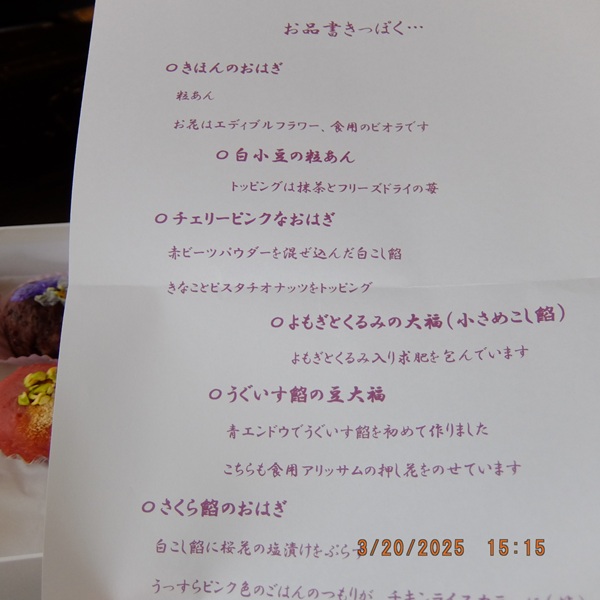 お品書きっぽく…
○きほんのおはぎ
粒あん
お花はエディブルフラワー、食用のビオラです
○白小豆の粒あん
トッピングは抹茶とフリーズドライの苺
○チェリーピンクなおはぎ
赤ビーツパウダーを混ぜ込んだ白こし餡
きなことピスタチオナッツをトッピング
○よもぎとくるみの大福(小さめこし餡)
よもぎとくるみ入り求肥を包んでいます
○うぐいす餡の豆大福
青エンドウでうぐいす餡を初めて作りました
こちらも食用アリッサムの押し花をのせています
○さくら餡のおはぎ
白こし餡に桜花の塩漬けをぷらす
3/20/2025 15:15
うっすらピンク色のごはんのつもりが、チキンライスカラー